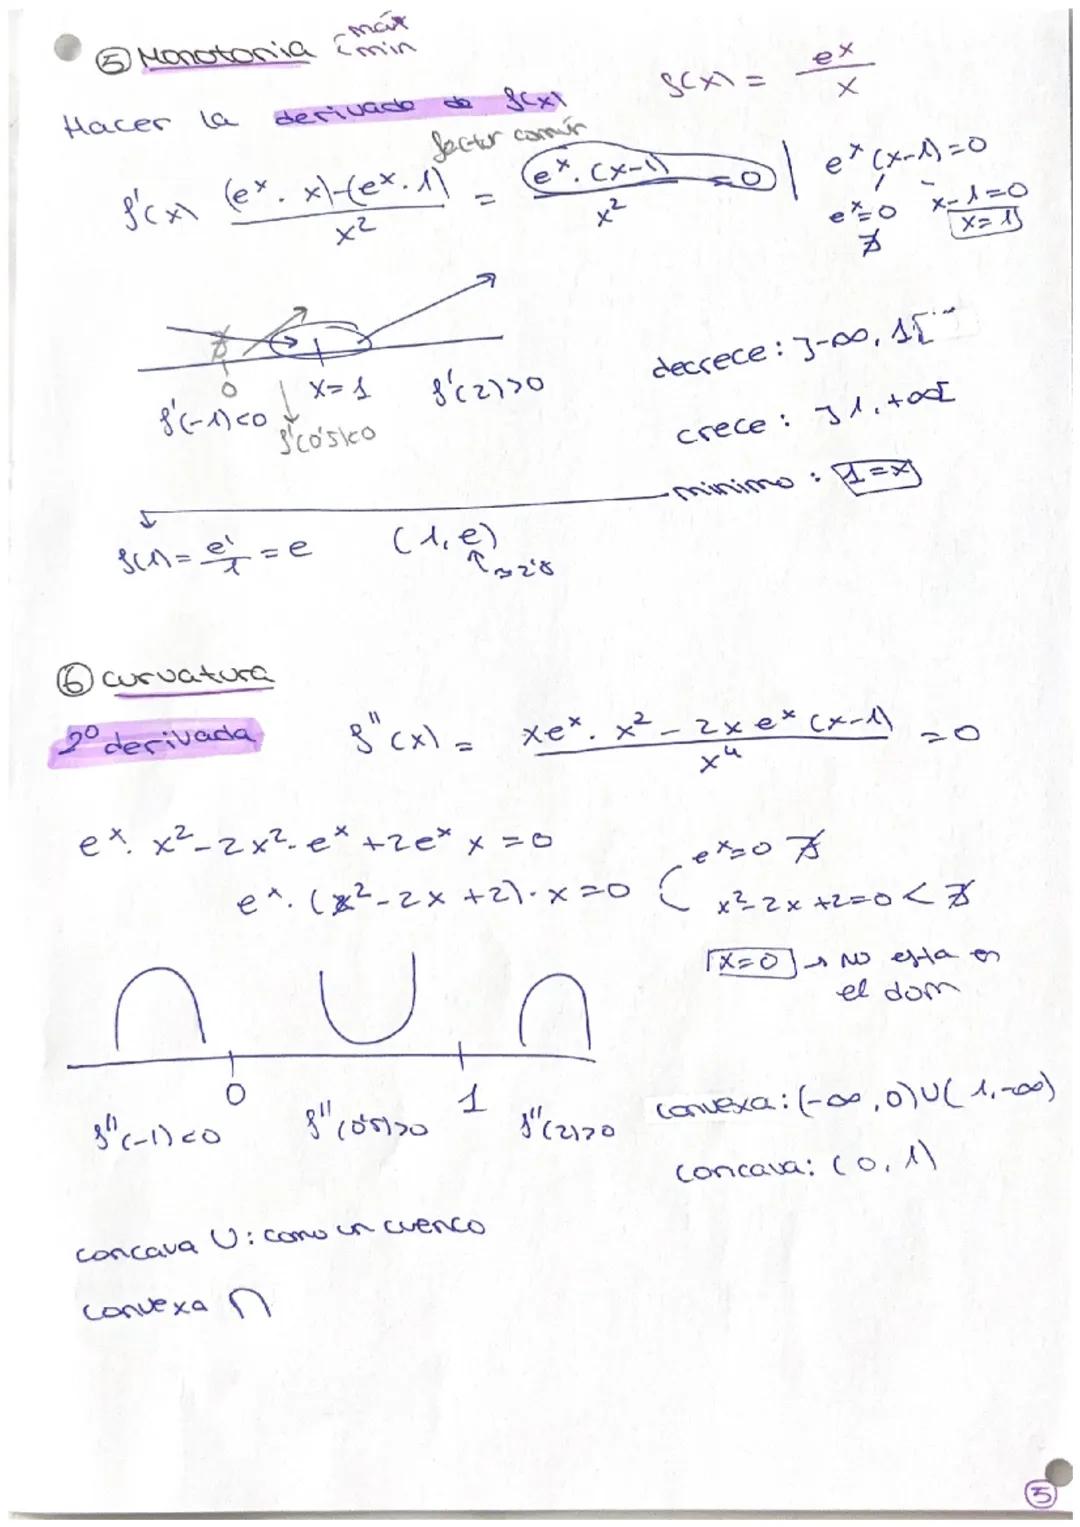 ⑤ Monotonia { máx
min
f(x) = e^x / x
Hacer la derivada de f(x)
factor común
f'(x) (e^x · x)-(e^x · 1) / x² = e^x · (x-1) / x² = 0 | e^x (x-1)=0
e^x=0 x-1=0
∄ x=1
∄
0 x=1 f'(2)>0
f'(-1)<0 f'(0'5)<0
decrece: ]-∞, 1[
crece: ]1, +∞[
minimo: 1=x
f(1) = e¹/1 = e (1, e)
↑ ≈ 2'8
⑥ curvatura
2º derivada f''(x) = xe^x · x² - 2x e^x (x-1) / x⁴ = 0
e^x · x² - 2x² · e^x + 2e^x x = 0
e^x=0 ∄
e^x · (x² - 2x + 2) · x = 0
x²-2x+2=0 < ∄
x=0 → No esta en
el dom
0 1
f''(-1)<0 f''(0'5)>0 f''(2)>0
convexa: (-∞, 0)∪(1, -∞)
concava: (0, 1)
concava ∪: como un cuenco
convexa ∩
⑤